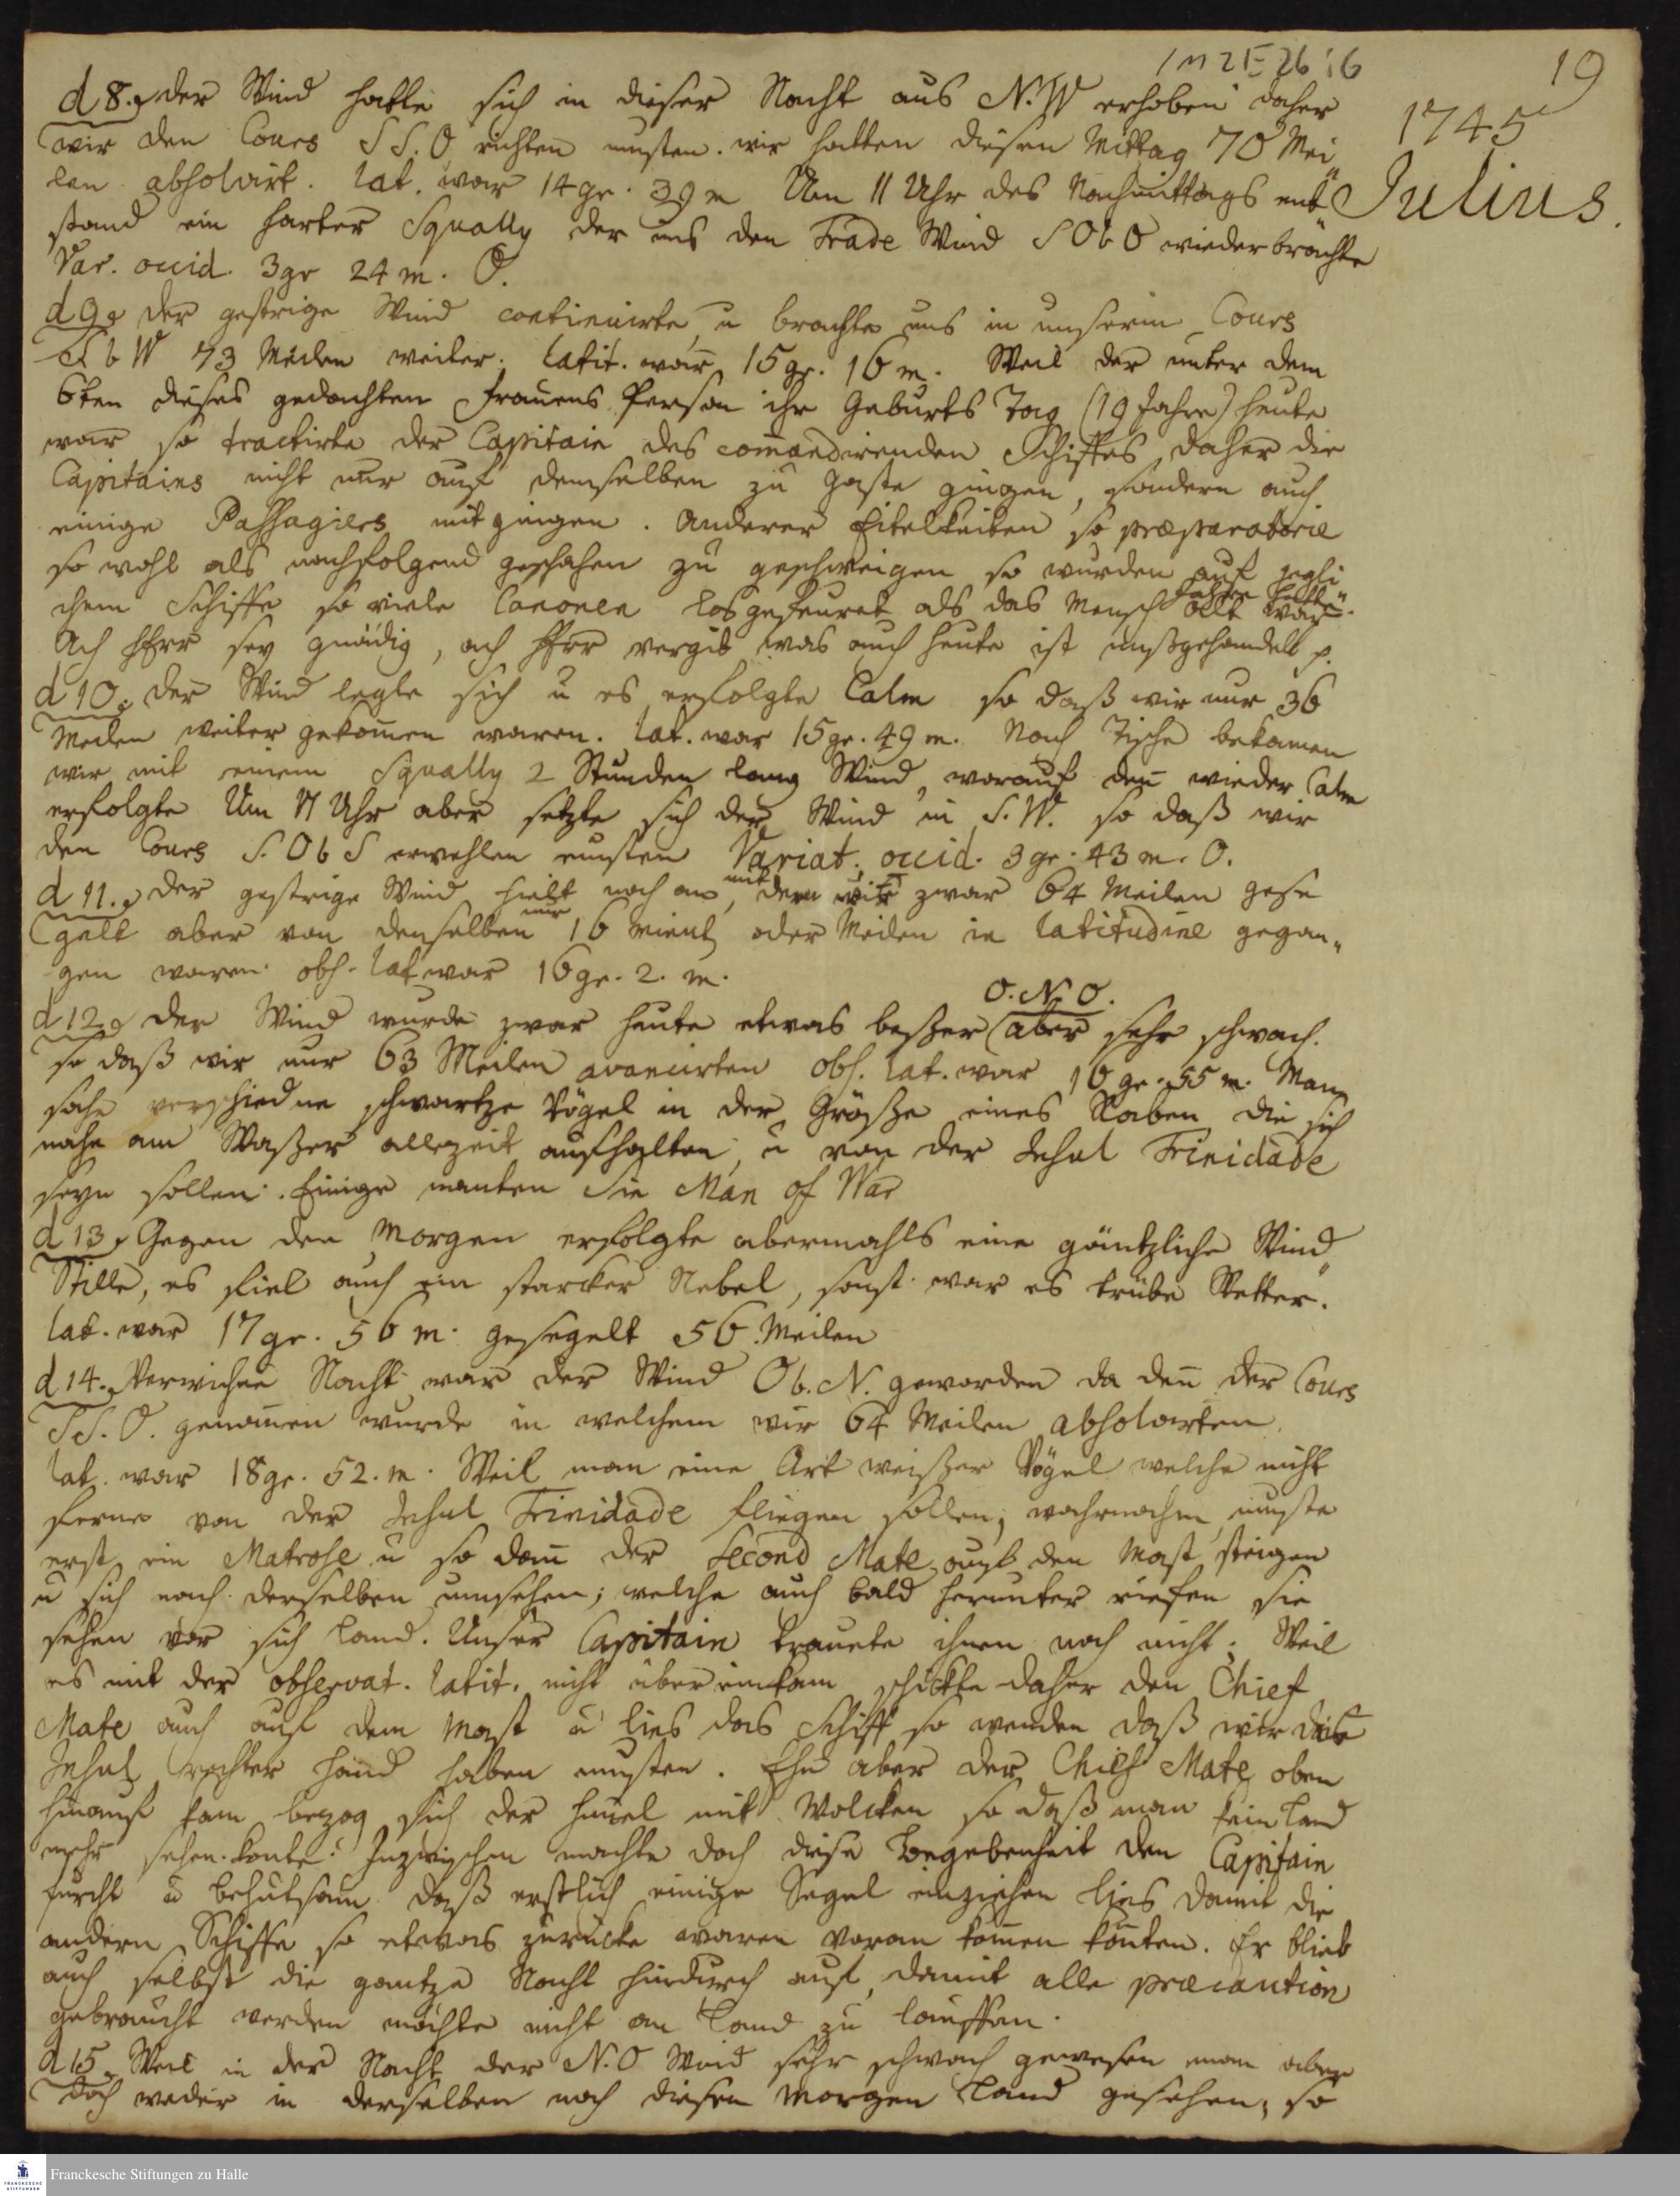 1 M 2 E 26 : 6
19
1745
Julius.
d 8. der Wind hatte sich in dieser Nacht aus N.W erhoben daher
wir den Cours S S. O richten musten. wir hatten diesen Mittag 70 Mei„
len absolvirt. lat. war 14 gr. 39 m Um 11 Uhr des Nachmittags ent„
stand ein harter Squally der uns den Trade Wind S O b O wiederbrachte
Var. occid. 3 gr 24 m. O.
d 9. der gestrige Wind continuirte, u brachte uns in unserm Cours
S b W 73 Meilen weiter. latit. war 15 gr. 16 m. Weil der unter dem
6ten dieses gedachten Frauens Person ihr Geburts Tag (19 Jahre) heute
war so tractirte der Capitain des com̄andirenden Schiffes, daher die
Capitains nicht nur auf demselben zu Gaste gingen, sondern auch
einige Passagiers mit gingen. Anderer Eitelkeiten so præparatorie
so wohl als nachfolgend geschahen zu geschweigen so wurden auf jegli„
chem Schiffe so viele Canonen losgefeuret als das Mensch Jahre hatte
alt war.
Ach HErr sey gnädig, ach HErr vergib was auch heute ist mißgehandelt p.
d 10. der Wind legte sich u es erfolgte Calm so daß wir nur 36
Meilen weiter gekom̄en waren. lat. war 15 gr. 49 m. Nach Tische bekamen
wir mit einem Squally 2 Stunden lang Wind, worauf den̄ wieder Calm
erfolgte Um 11 Uhr aber setzte sich der Wind in S. W. so daß wir
den Cours S. O b S erwehlen musten Variat. occid. 3 gr. 43 m. O.
d 11. der gestrige Wind hielt noch an, mit dem wir zwar 64 Meilen gese
gelt aber von denselben nur 16 minut oder Meilen in latitudine gegan„
gen waren. obs. lat war 16 gr. 2. m.
O. N. O.
d 12. der Wind wurde zwar heute etwas beßer aber sehr schwach.
so daß wir nur 63 Meilen avancirten obs. lat. war 16 gr. 55 m. Man
sahe verschiedne schwartze Vögel in der Größe eines Raben die sich
nahe am Waßer allezeit aufhalten, u von der Insul Trinidade
seyn sollen. Einige nanten sie Man of War
d 13. Gegen den Morgen erfolgte abermahls eine gäntzliche Wind„
Stille, es fiel auch ein starcker Nebel, sonst war es trübe Wetter.
lat. war 17 gr. 56 m. gesegelt 56. Meilen
d 14. Verwichne Nacht war der Wind O b. N. geworden da den̄ der Cours
S S. O. genom̄en wurde in welchem wir 64 Meilen absolvirten.
lat. war 18 gr. 52. m. Weil man eine Art weißer Vögel welche nicht
ferne von der Insul Trinidade fliegen sollen, wahrnahm, muste
erst ein Matrose u so dan̄ der Second Mate auf den Mast steigen
u sich nach derselben umsehen; welche auch bald herunter riefen sie
sehen vor sich Land. Unser Capitain trauete ihnen noch nicht; Weil
es mit der observat. latit. nicht übereinkam schickte daher den Chief
Mate auch auf dem Mast u lies das Schiff so wenden daß wir die
Insul rechter Hand haben musten. Ehe aber der Chief Mate oben
hinauf kam bezog sich der Him̄el mit Wolcken so daß man kein Land
mehr sehen konte. Inzwischen machte doch diese Begebenheit den Capitain
furcht u behutsam daß erstlich einige Segel einziehen lies damit die
andern Schiffe so etwas zurücke waren voran kom̄en konten. Er blieb
auch selbst die gantze Nacht hindurch auf, damit alle præcaution
gebraucht werden möchte nicht an Land zu lauffen.
d 15. Weil in der Nacht der N. O Wind sehr schwach gewesen man aber
doch weder in derselben noch diesen Morgen Land gesehen, so
Franckesche Stiftungen zu Halle